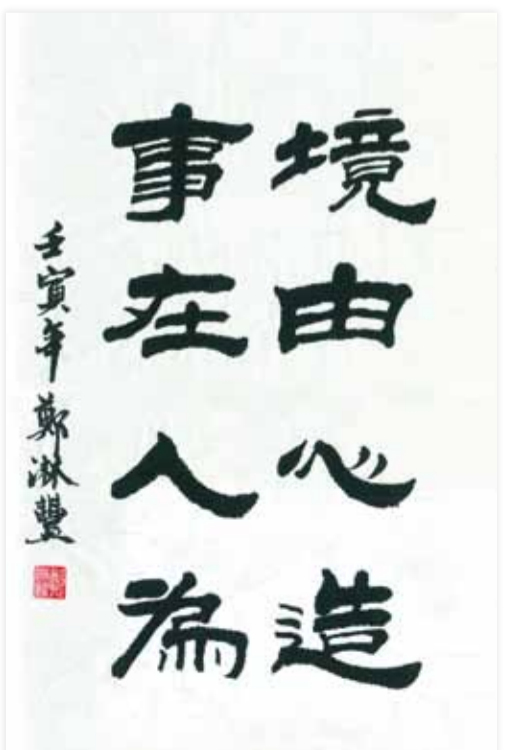 境由心造
事在人為
壬寅年鄭淋豐